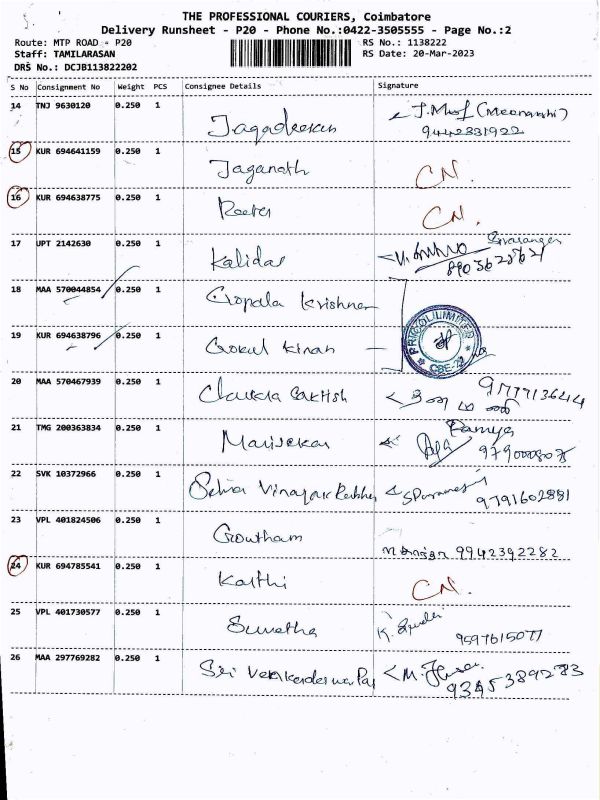 THE PROFESSIONAL COURIERS, Coimbatore
Delivery Runsheet - P20 - Phone No.:0422-3505555 - Page No.:2
Route: MTP ROAD - P20 RS No.: 1138222
Staff: TAMILARASAN RS Date: 20-Mar-2023
DRS No.: DCJB113822202
S No Consignment No Weight PCS Consignee Details Signature
14 TNJ 9630120 0.250 1 Jagadeesan (Meenakshi)
9442331922
15 KUR 694641159 0.250 1 Jaganath CN.
16 KUR 694638775 0.250 1 CN.
17 UPT 2142630 0.250 1 Kalidas
18 MAA 570044854 0.250 1 Gopala Krishnan
19 KUR 694638796 0.250 1 Gokul Kiran
PRICOL LIMITED
20 MAA 570467939 0.250 1
21 TMG 200363834 0.250 1 Ramya
22 SVK 10372966 0.250 1 Selva Vinayak
9791602881
23 VPL 401824506 0.250 1 Gowtham
9942392282
24 KUR 694785541 0.250 1 Karthi CN.
25 VPL 401730577 0.250 1 Suvetha
9597615077
26 MAA 297769282 0.250 1 Sri
9345389283